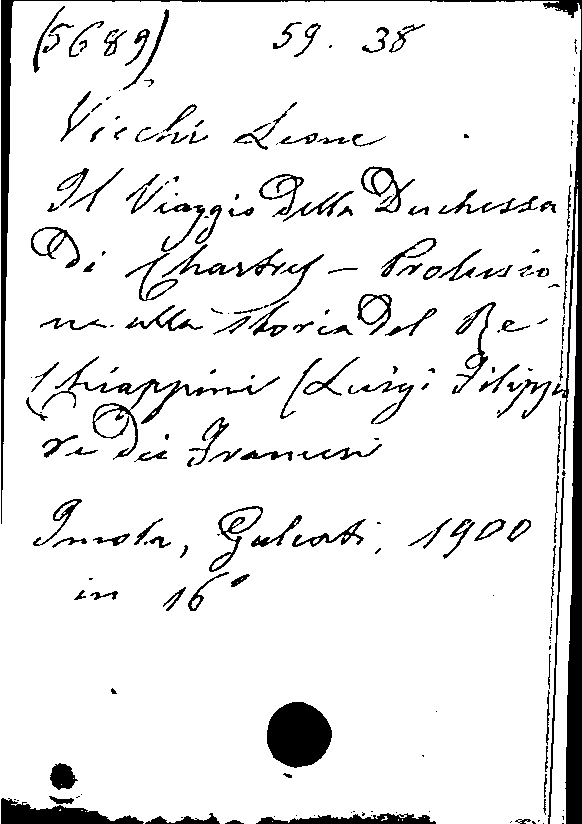 (5689) 59. 38
Vicchi Leone
Il Viaggio della Duchessa
di Chartres - Prolusio
ne alla storia del Re
Chiappini (Luigi Filippo
re dei Francesi
Imola, Galeati, 1900
in 16°